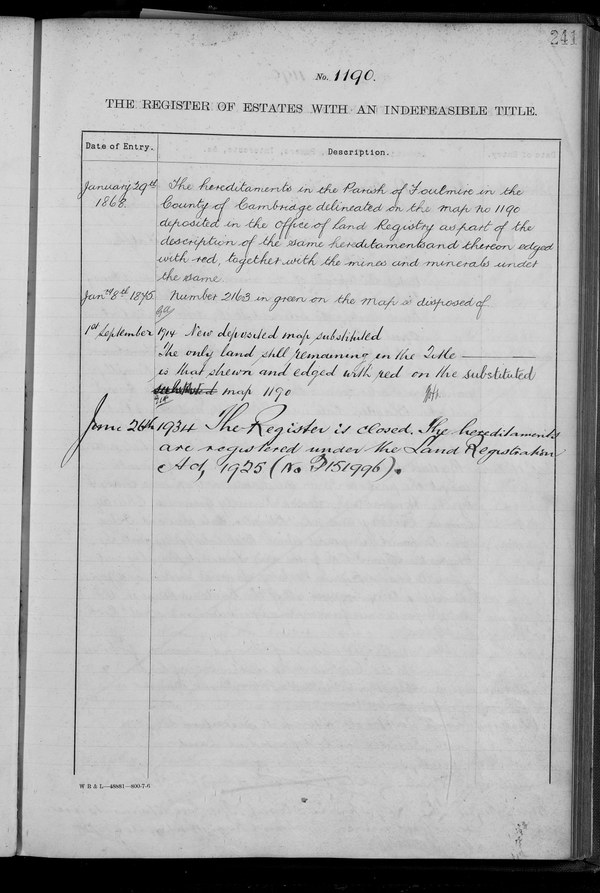 241
No. 1190.
THE REGISTER OF ESTATES WITH AN INDEFEASIBLE TITLE.
Date of Entry. Description.
January 29th 1868. The hereditaments in the Parish of Foulmire in the
County of Cambridge delineated on the map no 1190
deposited in the Office of Land Registry as part of the
description of the same hereditaments and thereon edged
with red, together with the mines and minerals under
the same.
Jany 8th 1895 Number 2163 in green on the Map is disposed of
1st September 1914 New deposited map substituted
The only land still remaining in the Title
is that shewn and edged with red on the substituted
map 1190
June 26th 1934 The Register is closed. The hereditaments
are registered under the Land Registration
Act, 1925 (No P151996).
W B & L—48881—800-7-6